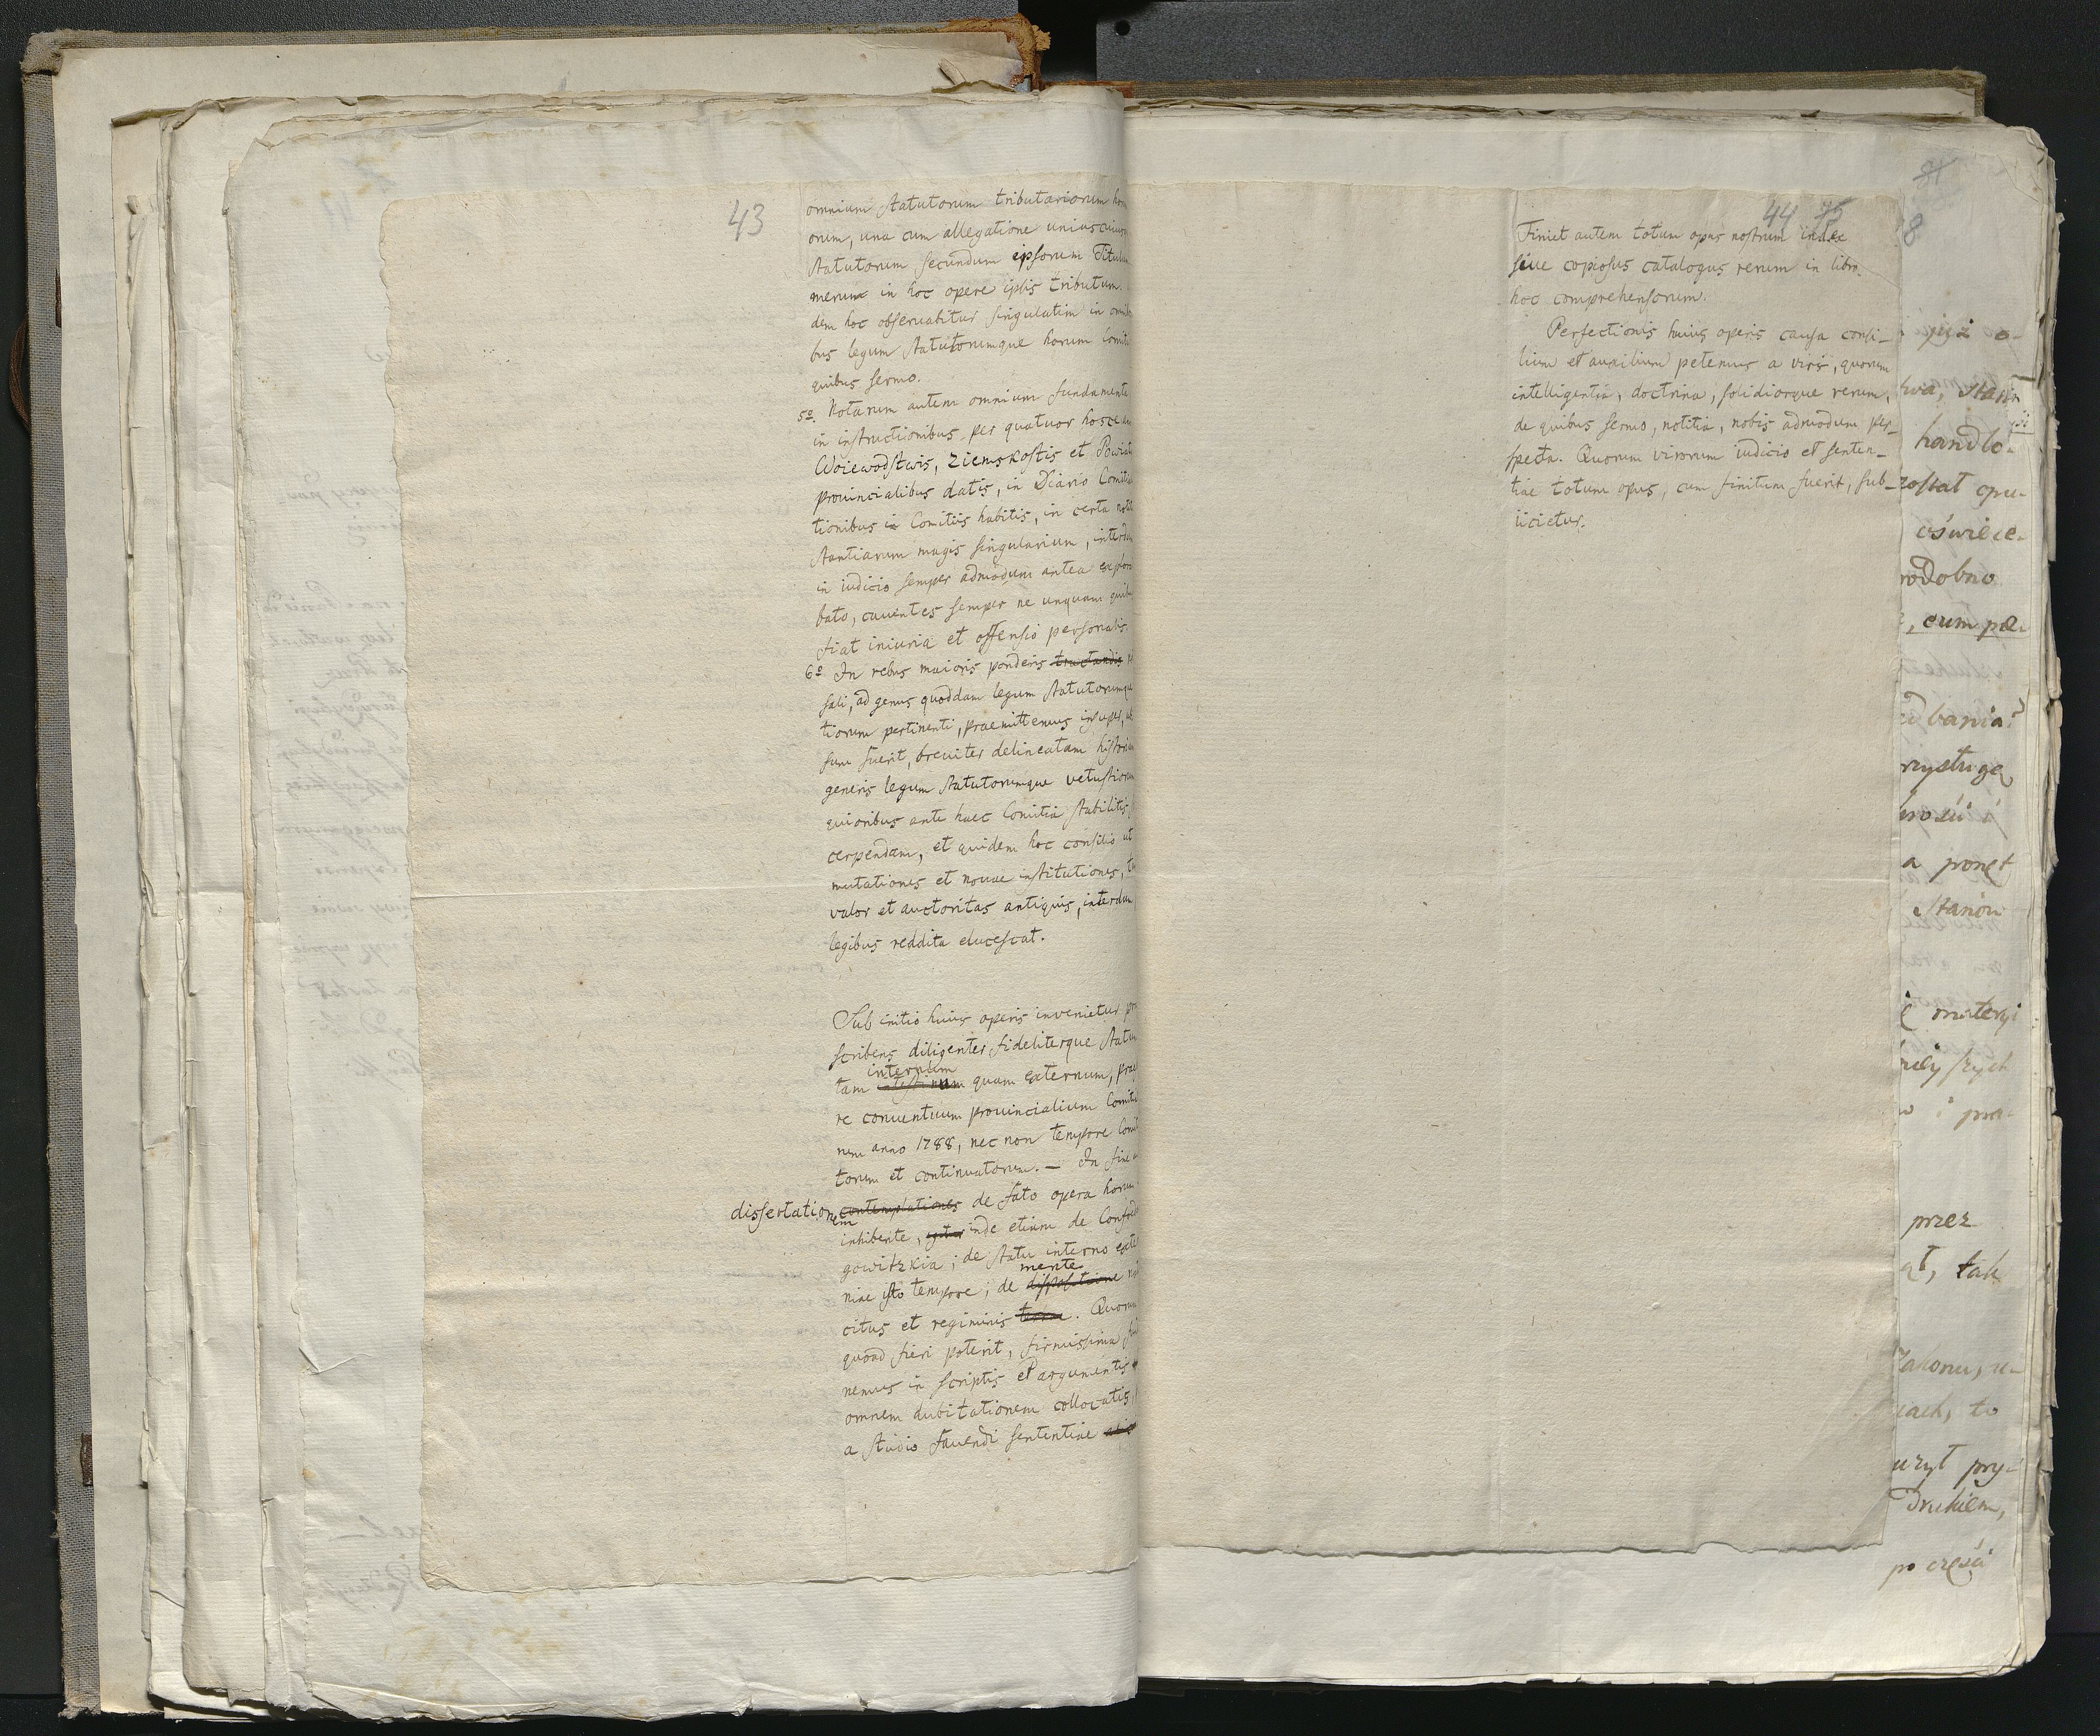 43
omnium statutorum tributariorum
orum, una cum allegatione uniuscuius
statutorum secundum ipsorum Titulum
merum in hoc opere ipsis tributum.
dem hoc obseruabitur singulatim in omni
bus legum statutorumque horum Comitio
quibus sermo.
5º. Notarum autem omnium fundamenta
in instructionibus per quatuor hosce
Woiewodstwis, Ziemskostis et Powiat
prouincialibus datis, in Diario Comitio
tionibus in Comitiis habitis, in certa noti
stantiarum magis singularium, interdum
in iudicio semper admodum antea explora
bato, cauentes semper ne unquam quibu
fiat iniuria et offensio personalis.
6º In rebus maioris ponderis tractandis
sali, ad genus quoddam legum statutorumque
tiorum pertinenti, praemittemus insuper,
sum fuerit, breuiter delineatam historiam
generis legum statutorumque vetustiorum
quioribus ante haec Comitia stabilitis
cerpendam, et quidem hoc consilio ut
mutationes et nouae institutiones,
valor et auctoritas antiquis, interdum
legibus reddita elucescat.
Sub initio huius operis invenietur
scribens diligenter fideliterque statum
internum
tam quam externum,
re conuentuum prouincialium Comitio
rum anno 1788, nec non tempore Comi
torum et continuatorum. — In fine
dissertationem contemplationes de fato opera horum
inhibente, inde etiam de Confoede
gowitzkia; de statu interno exter
mente
niae isto tempore; de dispositione
citus et regiminis. Quorum
quoad fieri poterit, firmissima
nemus in scriptis et argumentis
omnem dubitationem collocatis,
a studio fauendi sententiae
44 75
Finiet autem totum opus nostrum index
siue copiosus catalogus rerum in libro
hoc comprehensorum.
Perfectionis huius operis causa consi-
lium et auxilium petemus a viris, quorum
intelligentia, doctrina, solidiorque rerum,
de quibus sermo, notitia, nobis admodum per-
specta. Quorum virorum iudicio et senten-
tiae totum opus, cum finitum fuerit, sub-
iicietur.
81
8
już o-
handlo-
został opu-
oświece-
, cum pæ-
a ponet
stanów
materyi
przez
, tak
Zakonu, u-
, to
użył pry-
Drukiem,
po części